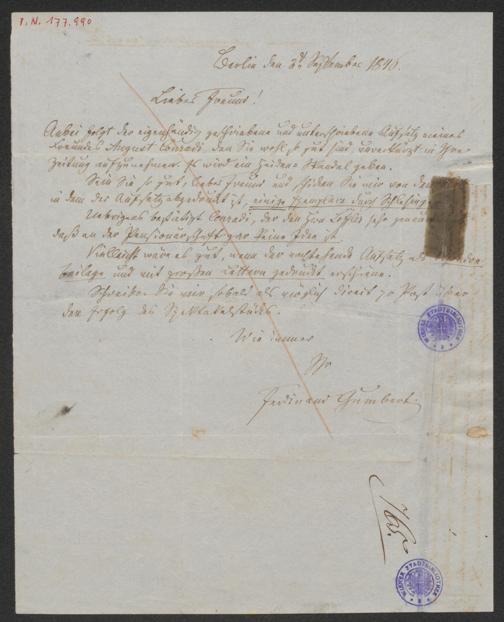 I.N. 177.990
Berlin den 3t September 1846.
Liebes Freund!
Anbei folgt der eigenhändig geschriebene und unterschriebene Aufsatz meines
Freundes August Conradi den Sie wohl so gut sind unverkürzt in Ihre
Zeitung aufzunehmen. Es wird ein Skandal geben.
Sein Sie so gut, lieber Freund und schicken Sie mir von
in dem der Aufsatz abgedruckt ist, einige Exemplare durch Schlesing
Uebrigens Conradi, der den sehr genau
daß an der Pensionärschaft gar keine Idee ist.
Vielleicht wäre es gut, wenn der Aufsatz als
beilage und mit großen Lettern gedruckt erschiene.
Schreiben Sie mir sobald als möglich direct pr Post über
den Erfolg des Spektakelstücks.
Wie immer
Ihr
Ferdinand Gumbert.
WIENER STADTBIBLIOTHEK
WIENER STADTBIBLIOTHEK